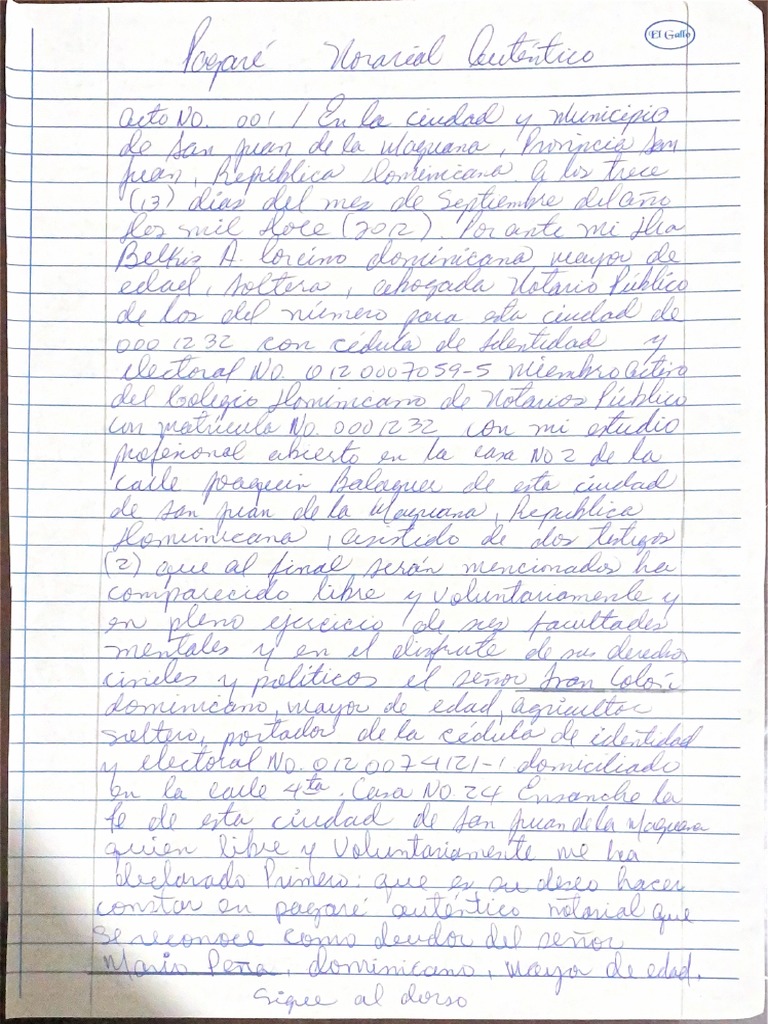 El Gallo
Pagaré Notarial Auténtico
Acto No. 001 / En la ciudad y municipio
de San Juan de la Maguana, Provincia San
Juan, República Dominicana a los trece
(13) días del mes de Septiembre del año
Dos mil Doce (2012). Por ante mi Dra
Belkis A. dominicana mayor de
edad, soltera, abogada Notario Público
de los del número para esta ciudad de
0001232 con cédula de Identidad y
electoral No. 0120007059-5 miembro activo
del Colegio Dominicano de Notarios Público
con matrícula No. 0001232 con mi estudio
profesional abierto en la casa No 2 de la
calle Joaquin Balaguer de esta ciudad
de San Juan de la Maguana, Republica
Dominicana, asistido de dos testigos
(2) que al final serán mencionados ha
comparecido libre y voluntariamente y
en pleno ejercicio de sus facultades
mentales y en el disfrute de sus derechos
civiles y políticos el señor Colón
dominicano, mayor de edad, agricultor
soltero, portador de la cédula de identidad
y electoral No. 0120074121-1 domiciliado
en la calle 4ta. Casa No. 24 Ensanche la
fe de esta ciudad de San Juan de la Maguana
quien libre y Voluntariamente me ha
declarado Primero: que es su deseo hacer
constar en pagaré auténtico notarial que
se reconoce como deudor del señor
Mario Peña, dominicano, mayor de edad.
Sigue al dorso